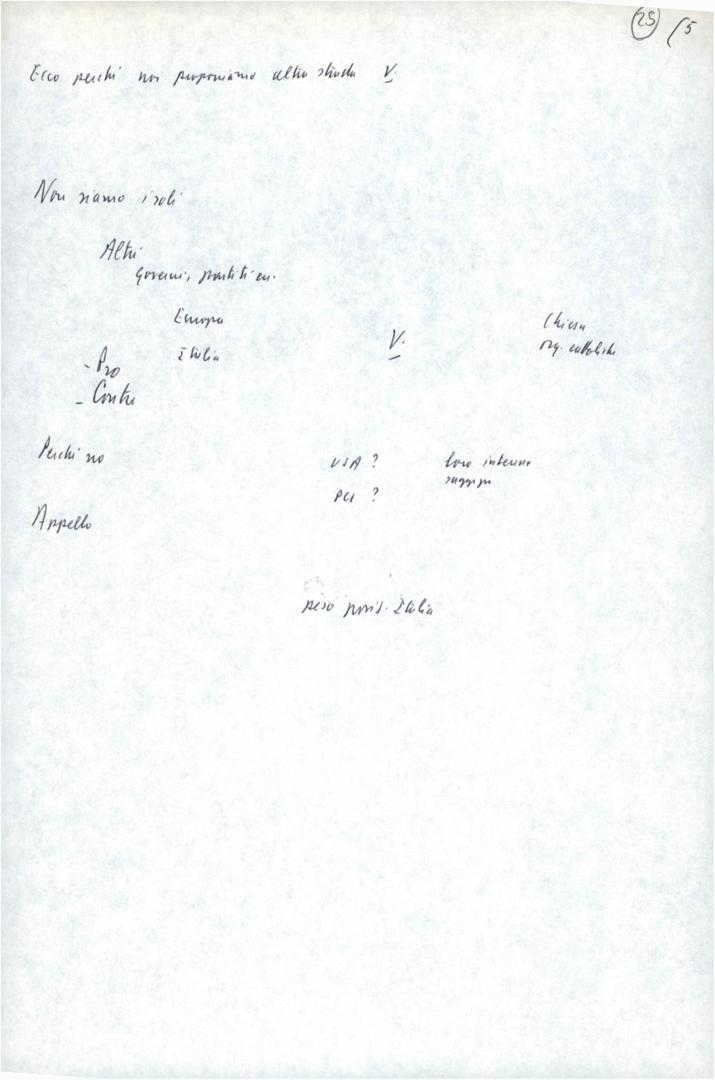 25 /5
Ecco perché noi proponiamo altra strada V.
Non siamo isolati
Altri
Governi, partiti
Europa
Italia
V.
Chiesa
org. cattoliche
- Pro
- Contro
Perché no
USA ?
loro interesse
PCI ?
Appello
peso Italia